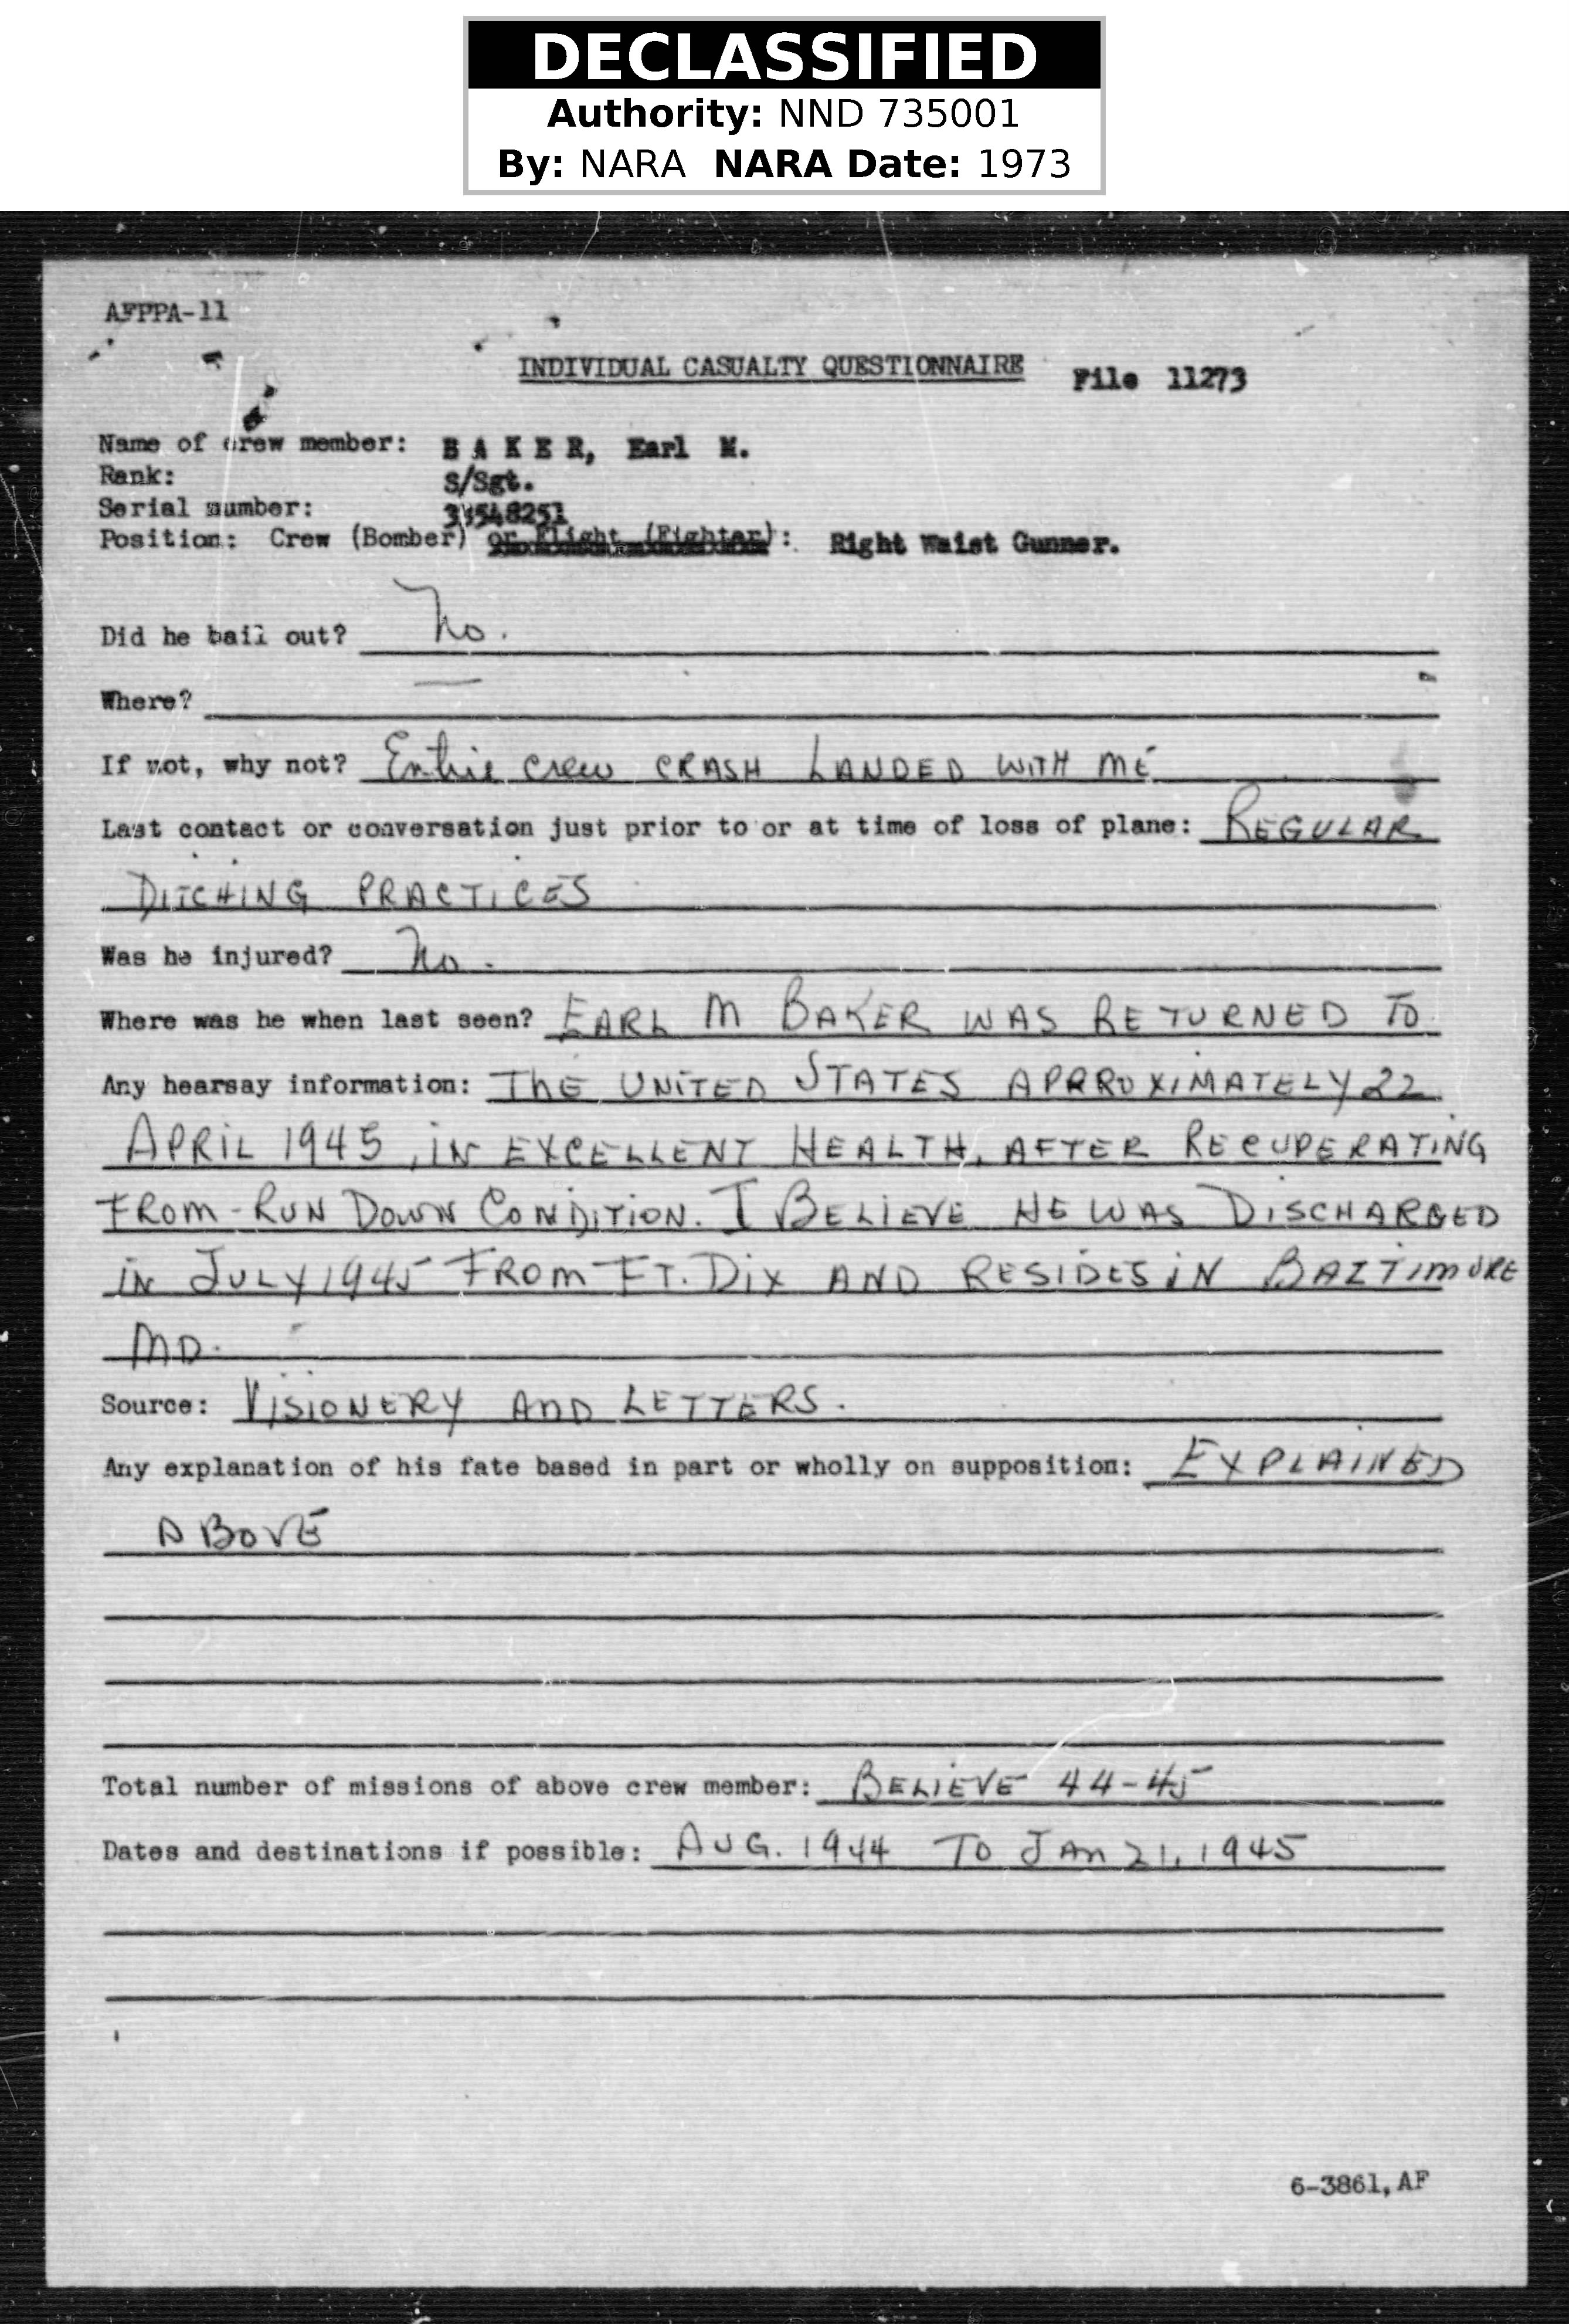 DECLASSIFIED
Authority: NND 735001
By: NARA NARA Date: 1973
AFPPA-11
INDIVIDUAL CASUALTY QUESTIONNAIRE File 11273
Name of crew member: B A K E R, Earl M.
Rank: S/Sgt.
Serial number:
Position: Crew (Bomber) or Flight (Fighter): Right Waist Gunner.
Did he bail out? No.
Where? —
If not, why not? Entire crew CRASH LANDED WITH ME
Last contact or conversation just prior to or at time of loss of plane: REGULAR
DITCHING PRACTICES
Was he injured? No.
Where was he when last seen? EARL M BAKER WAS RETURNED TO
Any hearsay information: THE UNITED STATES APPROXIMATELY 22
APRIL 1945, IN EXCELLENT HEALTH, AFTER RECUPERATING
FROM-RUN DOWN CONDITION. I BELIEVE HE WAS DISCHARGED
IN JULY 1945 FROM FT. DIX AND RESIDES IN BALTIMORE
MD.
Source: VISIONERY AND LETTERS.
Any explanation of his fate based in part or wholly on supposition: EXPLAINED
ABOVE
Total number of missions of above crew member: BELIEVE 44-45
Dates and destinations if possible: AUG. 1944 TO JAN 21, 1945
6-3861, AF